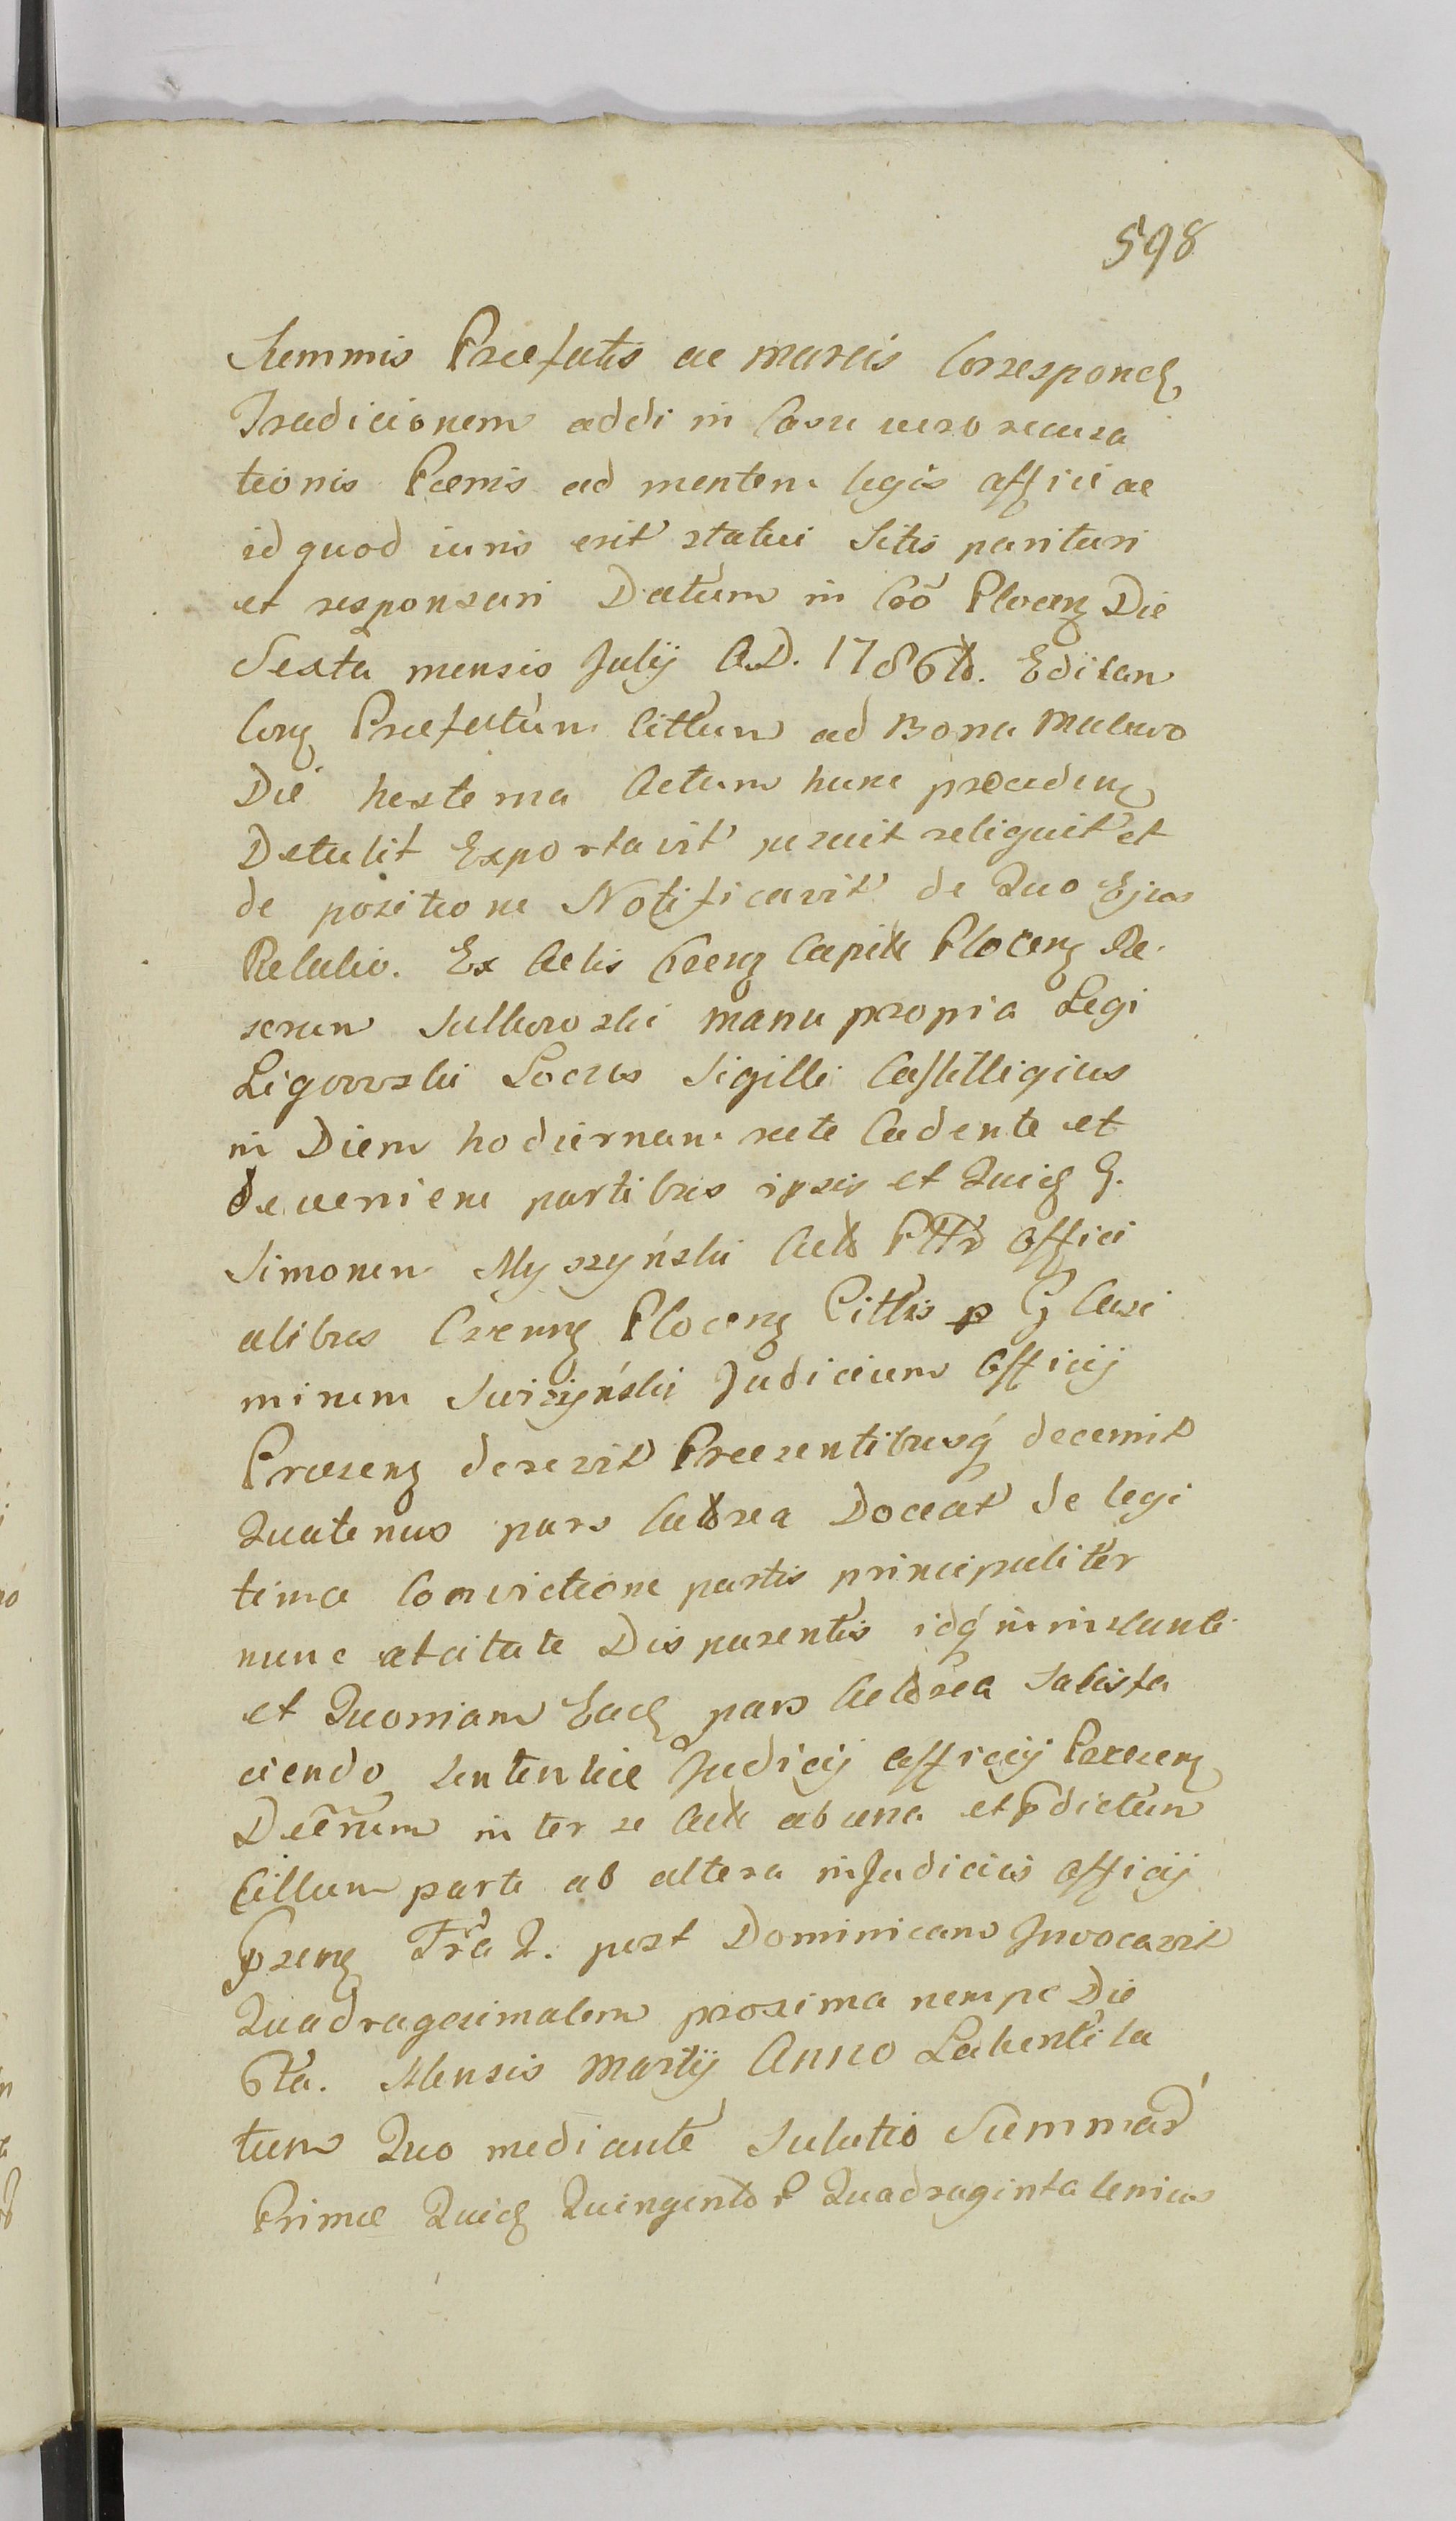 598
Summis Præfatis ac mareis Corresponđ
Tradicionem addi in Casu vero recusa
tionis Pænis ad mentem legis affici ac
id quod iuris erit statui Sitis parituri
et responsuri Datum in Cró Plocen Die
Sexta mensis Julij A.D. 1786to. Edit an
Præfatum Cittum ad Bona Malewo
Die hesterna Actum hunc præceden
Detulit Exportavit reliquit et
de positione Notificavit de Quo Ejus
Relatio. Ex Actis Cren Capit Plocen Re
scrun manu propria Legi
Ligowski Locus Sigilli Castr
in Diem hodiernam recte Cadente et
deveniene partibus ipsis et Quid G.
Simonem Myszyński Acto Offici
alibus Crenn Plocen Cittis p G Casi
mirum Swiżyński Judicium Officij
Præsens decrevit Præsentibusq decernit
Quatenus pars Actorea Doceat de legi
tima Convictione partis principaliter
nunc atcitate Disparentis idq in instanti
et Quoniam Ead pars Actorea Satisfa
ciendo Sententiæ Judicij Officij Præsens
Decrum inter se Acto ab una et pdictum
Cittum parte ab altera in Judiciis Officij
psens Fria 2. post Dominicam Invocavit
Quadragesimalem proxima nempe Die
6ta. Mensis Martij Anno Labenti la
tum Quo mediante Solutio Summar
Primæ Quid Quingentor Quadraginta